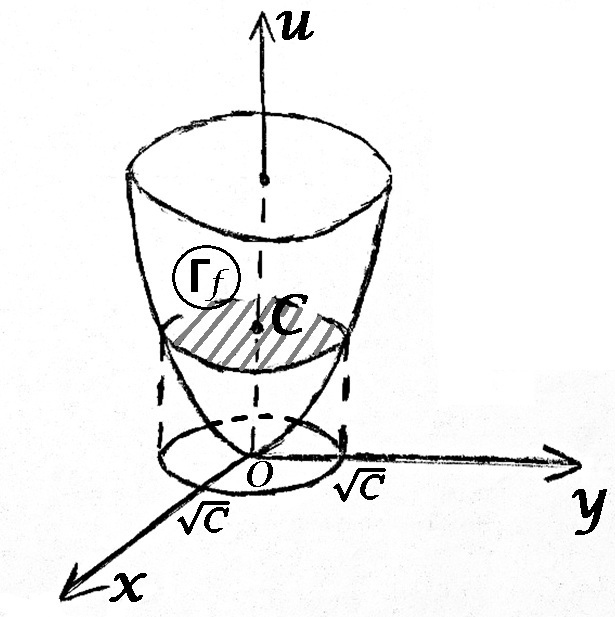 u
Γf
C
O
√C
√C
y
x